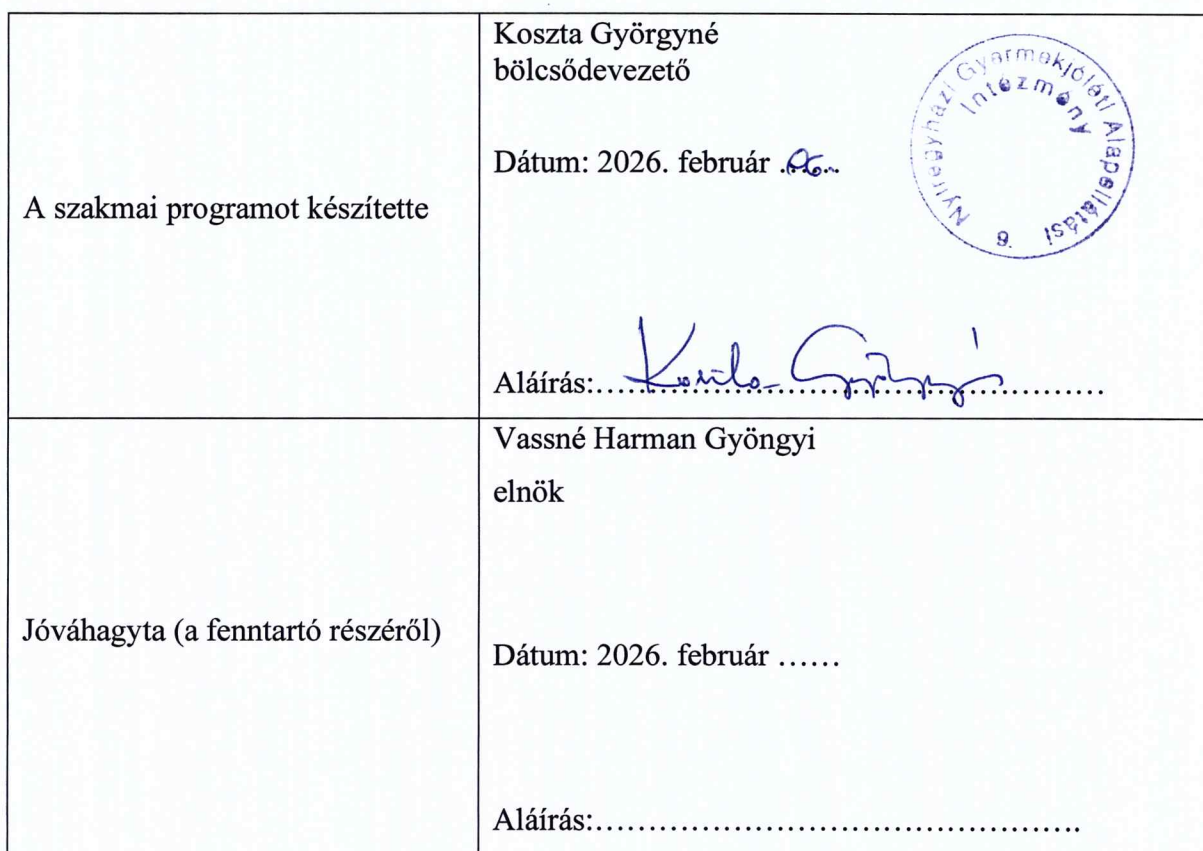 A szakmai programot készítette
Koszta Györgyné
bölcsődevezető
Dátum: 2026. február 06.
Nyíregyházi Gyermekjóléti Alapellátási
Intézmény
Aláírás:.......Koszta Györgyné.......
Jóváhagyta (a fenntartó részéről)
Vassné Harman Gyöngyi
elnök
Dátum: 2026. február ......
Aláírás:..................................................